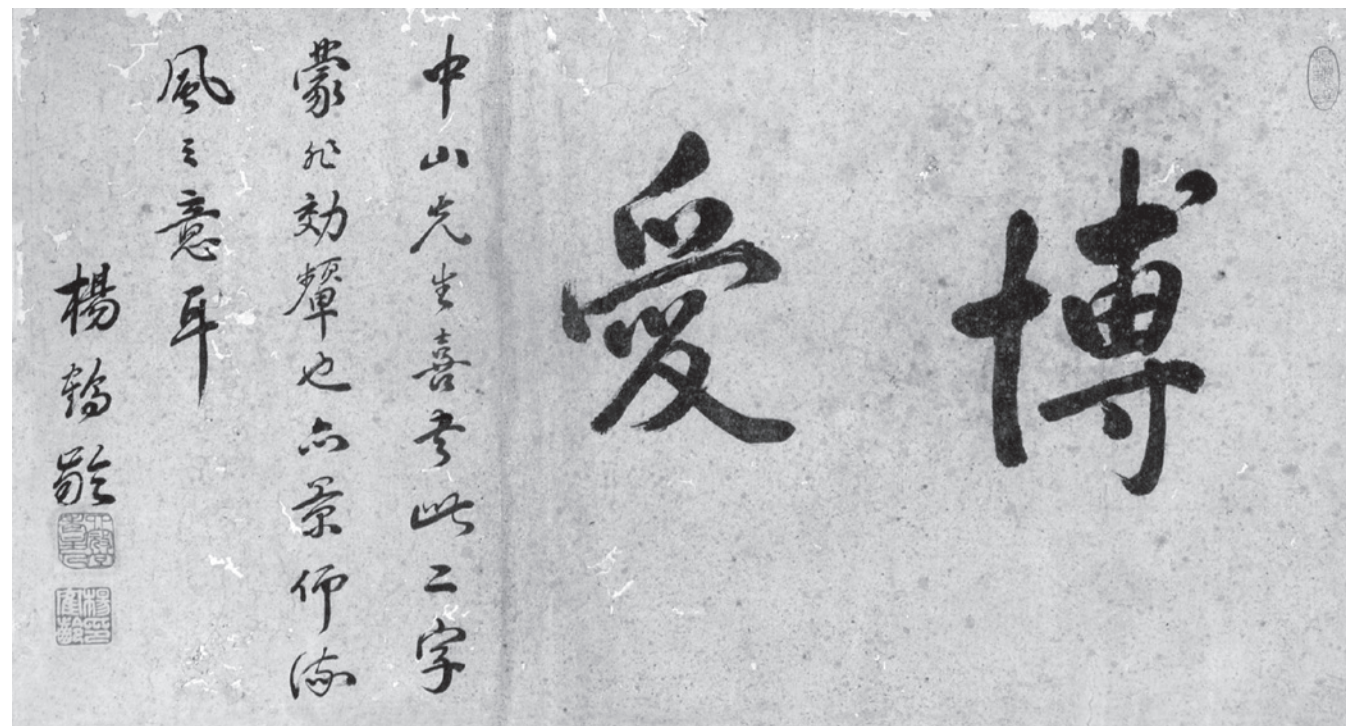 博愛
中山先生喜書此二字
蒙非効顰也亦景仰流
風之意耳
楊鶴齡
楊印鶴齡